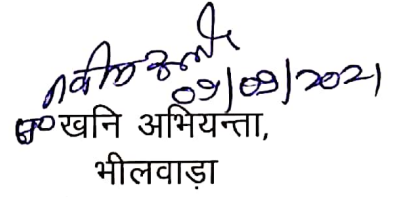 09/09/2021
खनि अभियन्ता,
भीलवाड़ा